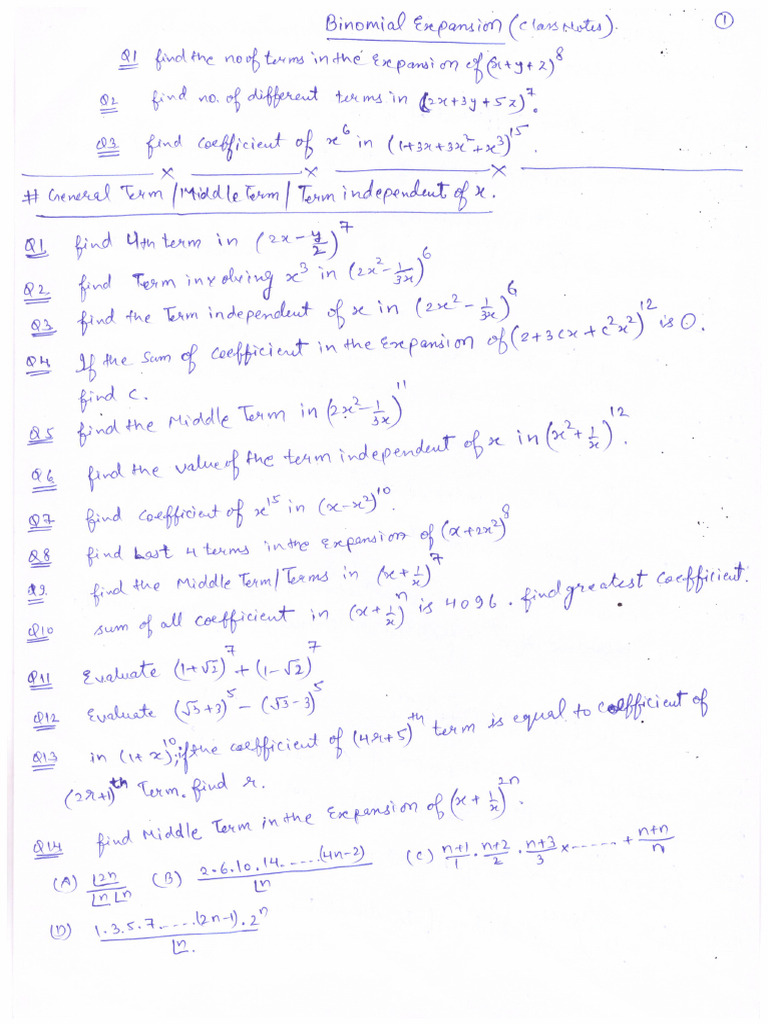 Binomial Expansion (Class Notes). ①
Q1 find the no of terms in the Expansion of (x+y+z)^8
Q2 find no. of different terms in (2x+3y+5z)^7.
Q3 find coefficient of x^6 in (1+3x+3x^2+x^3)^15.
# General Term /Middle Term/ Term independent of x.
Q1 find 4th term in (2x - y/2)^7
Q2. find Term involving x^3 in (2x^2 - 1/3x)^6
Q3. find the Term independent of x in (2x^2 - 1/3x)^6
Q4 If the sum of coefficient in the Expansion of (2+3cx+c^2x^2)^12 is 0.
find c.
Q5 find the Middle Term in (2x^2 - 1/3x)^11
Q6 find the value of the term independent of x in (x^2 + 1/x)^12.
Q7 find coefficient of x^15 in (x-x^2)^10.
Q8 find Last 4 terms in the Expansion of (x+2x^2)^8
Q9. find the Middle Term/Terms in (x + 1/x)^7
Q10 sum of all coefficient in (x + 1/x)^n is 4096. find greatest coefficient.
Q11 Evaluate (1+√2)^7 + (1-√2)^7
Q12 Evaluate (√3+3)^5 - (√3-3)^5
Q13 in (1+x)^10; if the coefficient of (4r+5)^th term is equal to coefficient of
(2r+1)^th Term. find r.
Q14 find Middle Term in the Expansion of (x + 1/x)^2n.
(A) |2n / |n |n (B) 2.6.10.14......(4n-2) / |n (C) n+1/1 . n+2/2 . n+3/3 x ...... + n+n/n
(D) 1.3.5.7.....(2n-1).2^n / |n.